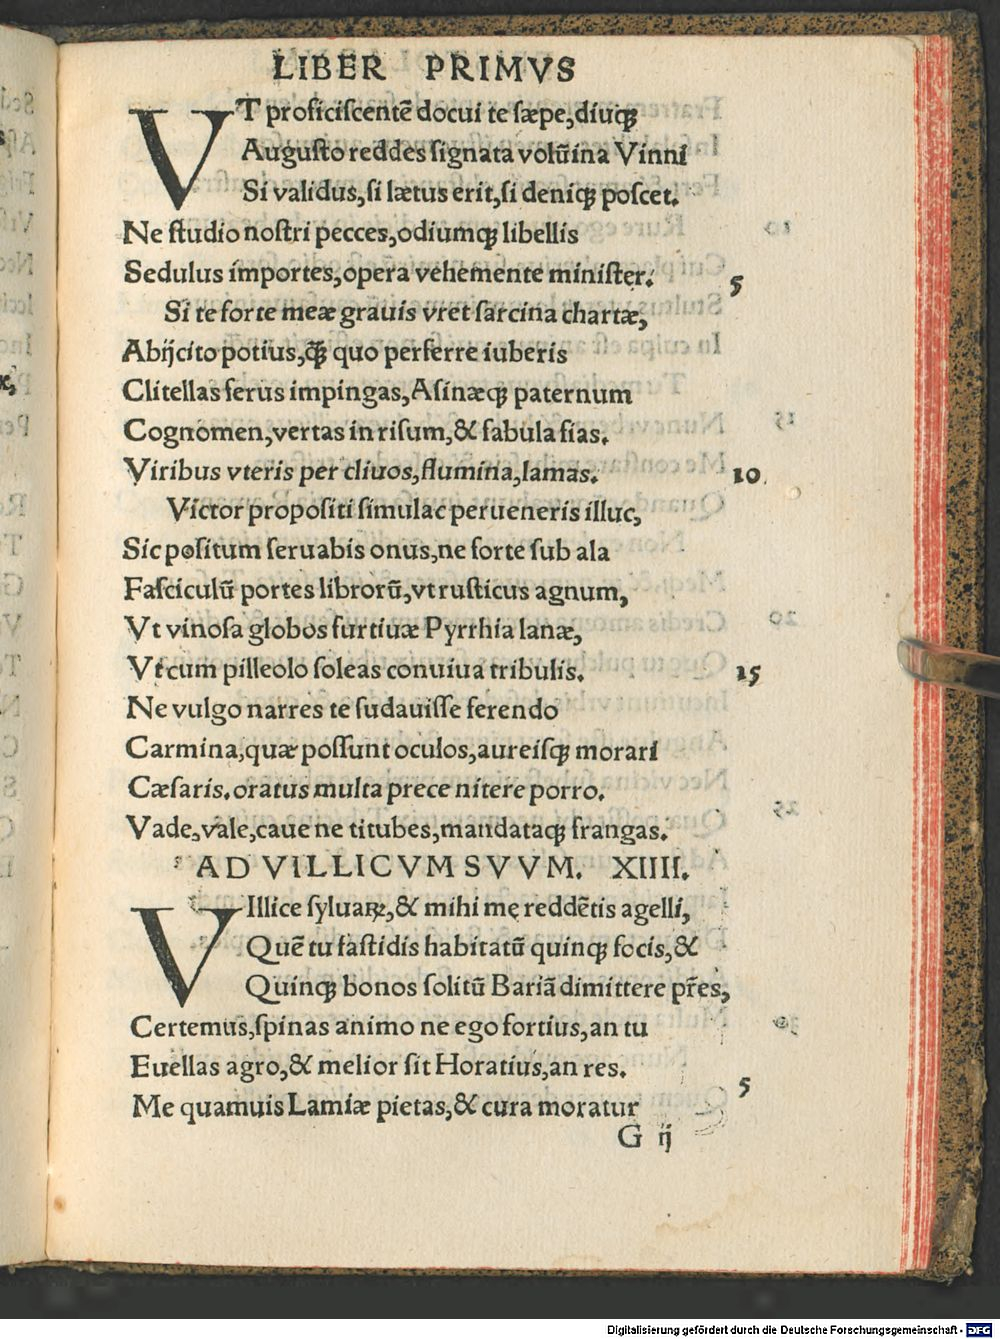 LIBER PRIMVS
VT proficiſcentē docui te ſæpe, diuq̃
Auguſto reddes ſignata volūina Vinni
Si validus, ſi lætus erit, ſi deniq̃ poſcet.
Ne ſtudio noſtri pecces, odiumq̃ libellis
Sedulus importes, opera vehemente miniſter.
5
Si te forte meæ grauis vret ſarcina chartæ,
Abijcito potius, q̃ quo perferre iuberis
Clitellas ferus impingas, Aſinæq̃ paternum
Cognomen, vertas in riſum, & fabula fias.
Viribus vteris per cliuos, flumina, lamas.
10
Victor propoſiti ſimulac perueneris illuc,
Sic poſitum ſeruabis onus, ne forte ſub ala
Faſciculū portes librorū, vt ruſticus agnum,
Vt vinoſa globos furtiuæ Pyrrhia lanæ,
Vt cum pilleolo ſoleas conuiua tribulis.
15
Ne vulgo narres te ſudauiſſe ferendo
Carmina, quæ poſſunt oculos, aureiſq̃ morari
Cæſaris. oratus multa prece nitere porro.
Vade, vale, caue ne titubes, mandataq̃ frangas.
AD VILLICVM SVVM. XIIII.
VIllice ſyluaꝝ, & mihi me reddētis agelli,
Quē tu faſtidis habitatū quinq̃ focis, &
Quinq̃ bonos ſolitū Bariā dimittere pr̄es,
Certemus, ſpinas animo ne ego fortius, an tu
Euellas agro, & melior ſit Horatius, an res.
5
Me quamuis Lamiæ pietas, & cura moratur
G ij
Digitalisierung gefördert durch die Deutsche Forschungsgemeinschaft - DFG